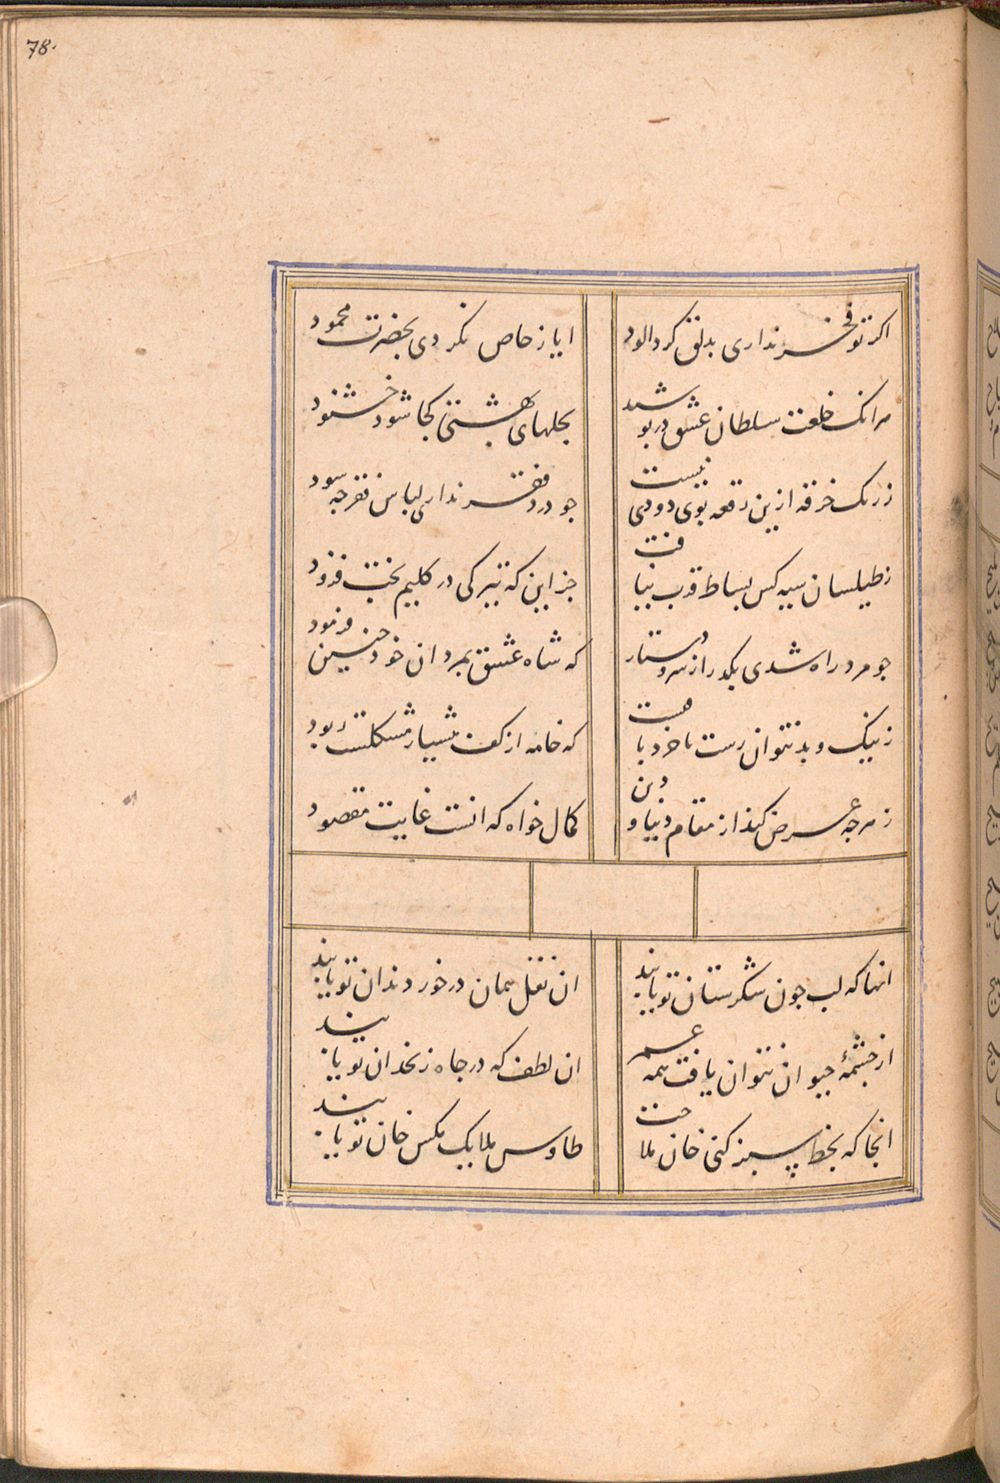 78.
اکر تو فخر نداری بدلق کرد الود
ایاز خاص نکردی بحضرت محمود
مرانک خلعت سلطان عشق در پوشید
بحلهای بهشتی کجا شود خشنود
زرنک خرقه ازین رقعه بوی دودی نیست
جو درد فقر نداری لباس فقر جه سود
زطیلسان سیه کس بساط قرب نیافت
جز این که تیرکی در کلیم بخت فزود
جو مرد راه شدی بکذر از سر و دستار
که شاه عشق بمردان خود جنین فرمود
زنیک و بد نتوان رست تا خرد باقیست
که خامه از کف هشیار مشکلست ربود
زهرجه عرض کنند از مقام دنیا و دین
کمال خواه که انست غایت مقصود
انها که لب جون شکرستان تو یابند
ان نقل همان در خور دندان تو یابند
از جشمهٔ حیوان نتوان یافت همه عمر
ان لطف که در جاه زنخدان تو یابند
انجا که بخط سبز کنی خان ملاحت
طاوس ملایک مکس خان تو یابند